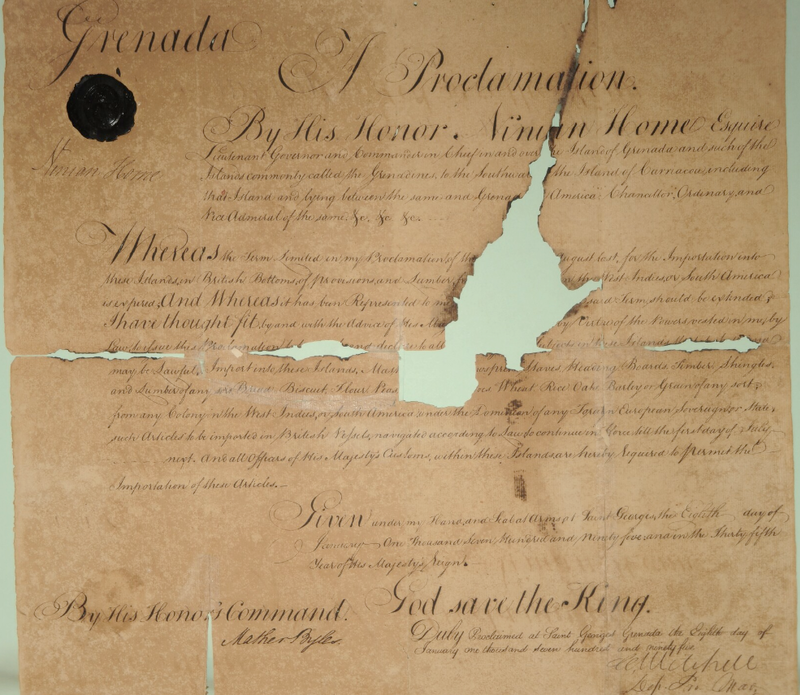 Grenada
A Proclamation.
By His Honor. Ninian Home Esquire
Ninian Home
Lieutenant Governor and Commander in Chief in and over the Island of Grenada and such of the
Islands commonly called the Grenadines, to the Southward the Island of Curriacou, including
that Island and lying between the same and Grenada America. Chancellor, Ordinary, and
Vice Admiral of the same. &c. &c. &c.
Whereas the Term Limited in my Proclamation of the August last, for the Importation into
these Islands, in British Bottoms, of provisions, and Lumber, West Indies, or South America
is expired, And Whereas it has been Represented to said Term, should be extended, I
I have thought fit, by and with the Advice of His by Virtue of the Powers vested in me, by
Law, to issue this Proclamation to all these Islands
may be Lawful, Import into these Islands, Staves Heading Boards, Timber Shingles,
and Lumber of any Bread Biscuit, Flour Peas and Wheat Rice Oats Barley or Grain of any sort
from any Colony in the West Indies, or South America under the Dominion of any Foreign European Sovereign or State,
such Articles to be imported in British Vessels, navigated according to Law, to continue in Force till the first day of July
next. And all Officers of His Majesty's Customs, within these Islands are hereby Required to permit the
Importation of these Articles.
Given under my Hand, and Seal at Arms at Saint Georges, this Eighth day of
January One Thousand Seven Hundred and Ninety five, and in the Thirty fifth
Year of His Majesty's Reign.
By His Honor's Command.
God save the King.
Mather Byles
Duly Proclaimed at Saint Georges Grenada the Eighth day of
January one thousand seven hundred and ninety five
Mitchell
Dep. Pro. Mar.